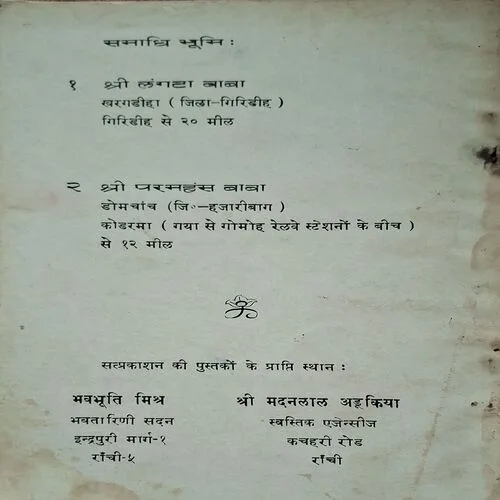 समाधि भूमि :
१ श्री लंगटा बाबा
खरगडीहा ( जिला-गिरिडीह )
गिरिडीह से २० मील
२ श्री परमहंस बाबा
डोमचांच (जि॰-हजारीबाग )
कोडरमा ( गया से गोमोह रेलवे स्टेशनों के बीच )
से १२ मील
सत्प्रकाशन की पुस्तकों के प्राप्ति स्थान :
भवभूति मिश्र
भवतारिणी सदन
इन्द्रपुरी मार्ग-१
राँची-५
श्री मदनलाल अड्डकिया
स्वस्तिक एजेन्सीज
कचहरी रोड
राँची